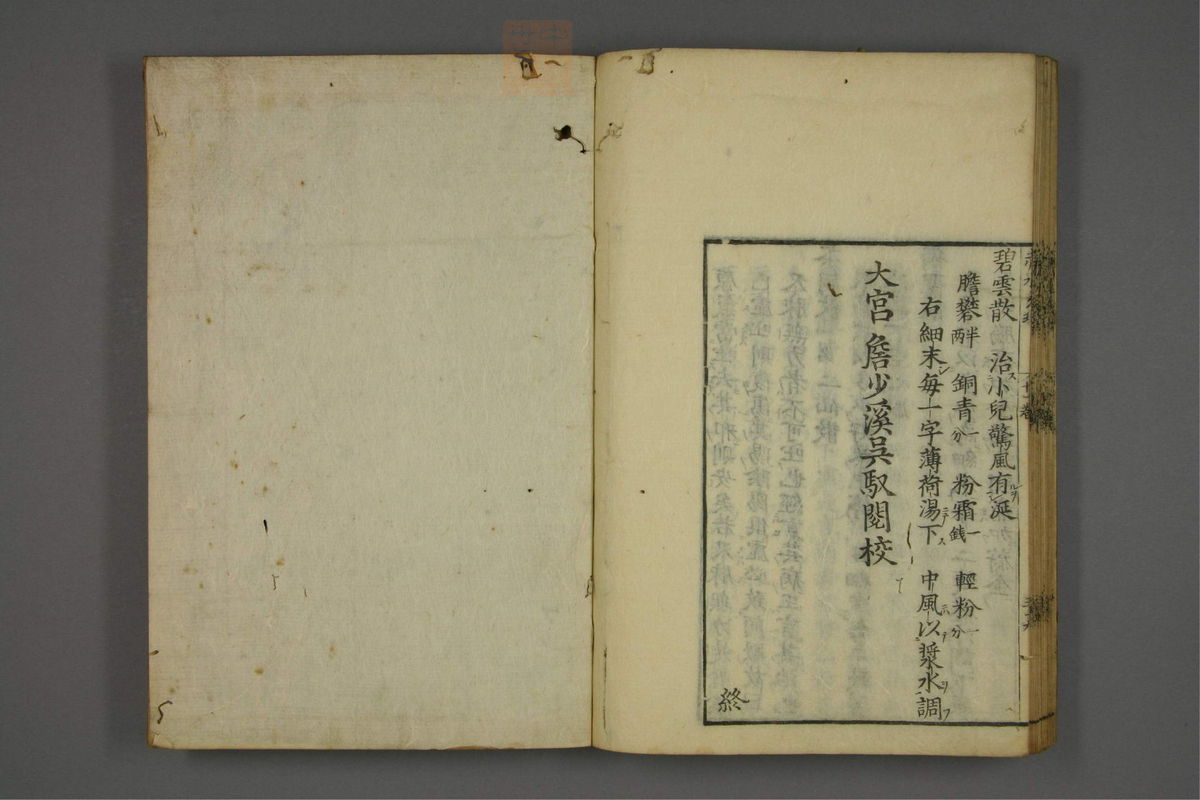 碧雲散 治小兒驚風有涎
膽礬半両 銅青一分 粉霜一銭 輕粉一分
右細末毎一字薄荷湯下 中風以漿水調
大宮 詹少溪吳馭閲校
終